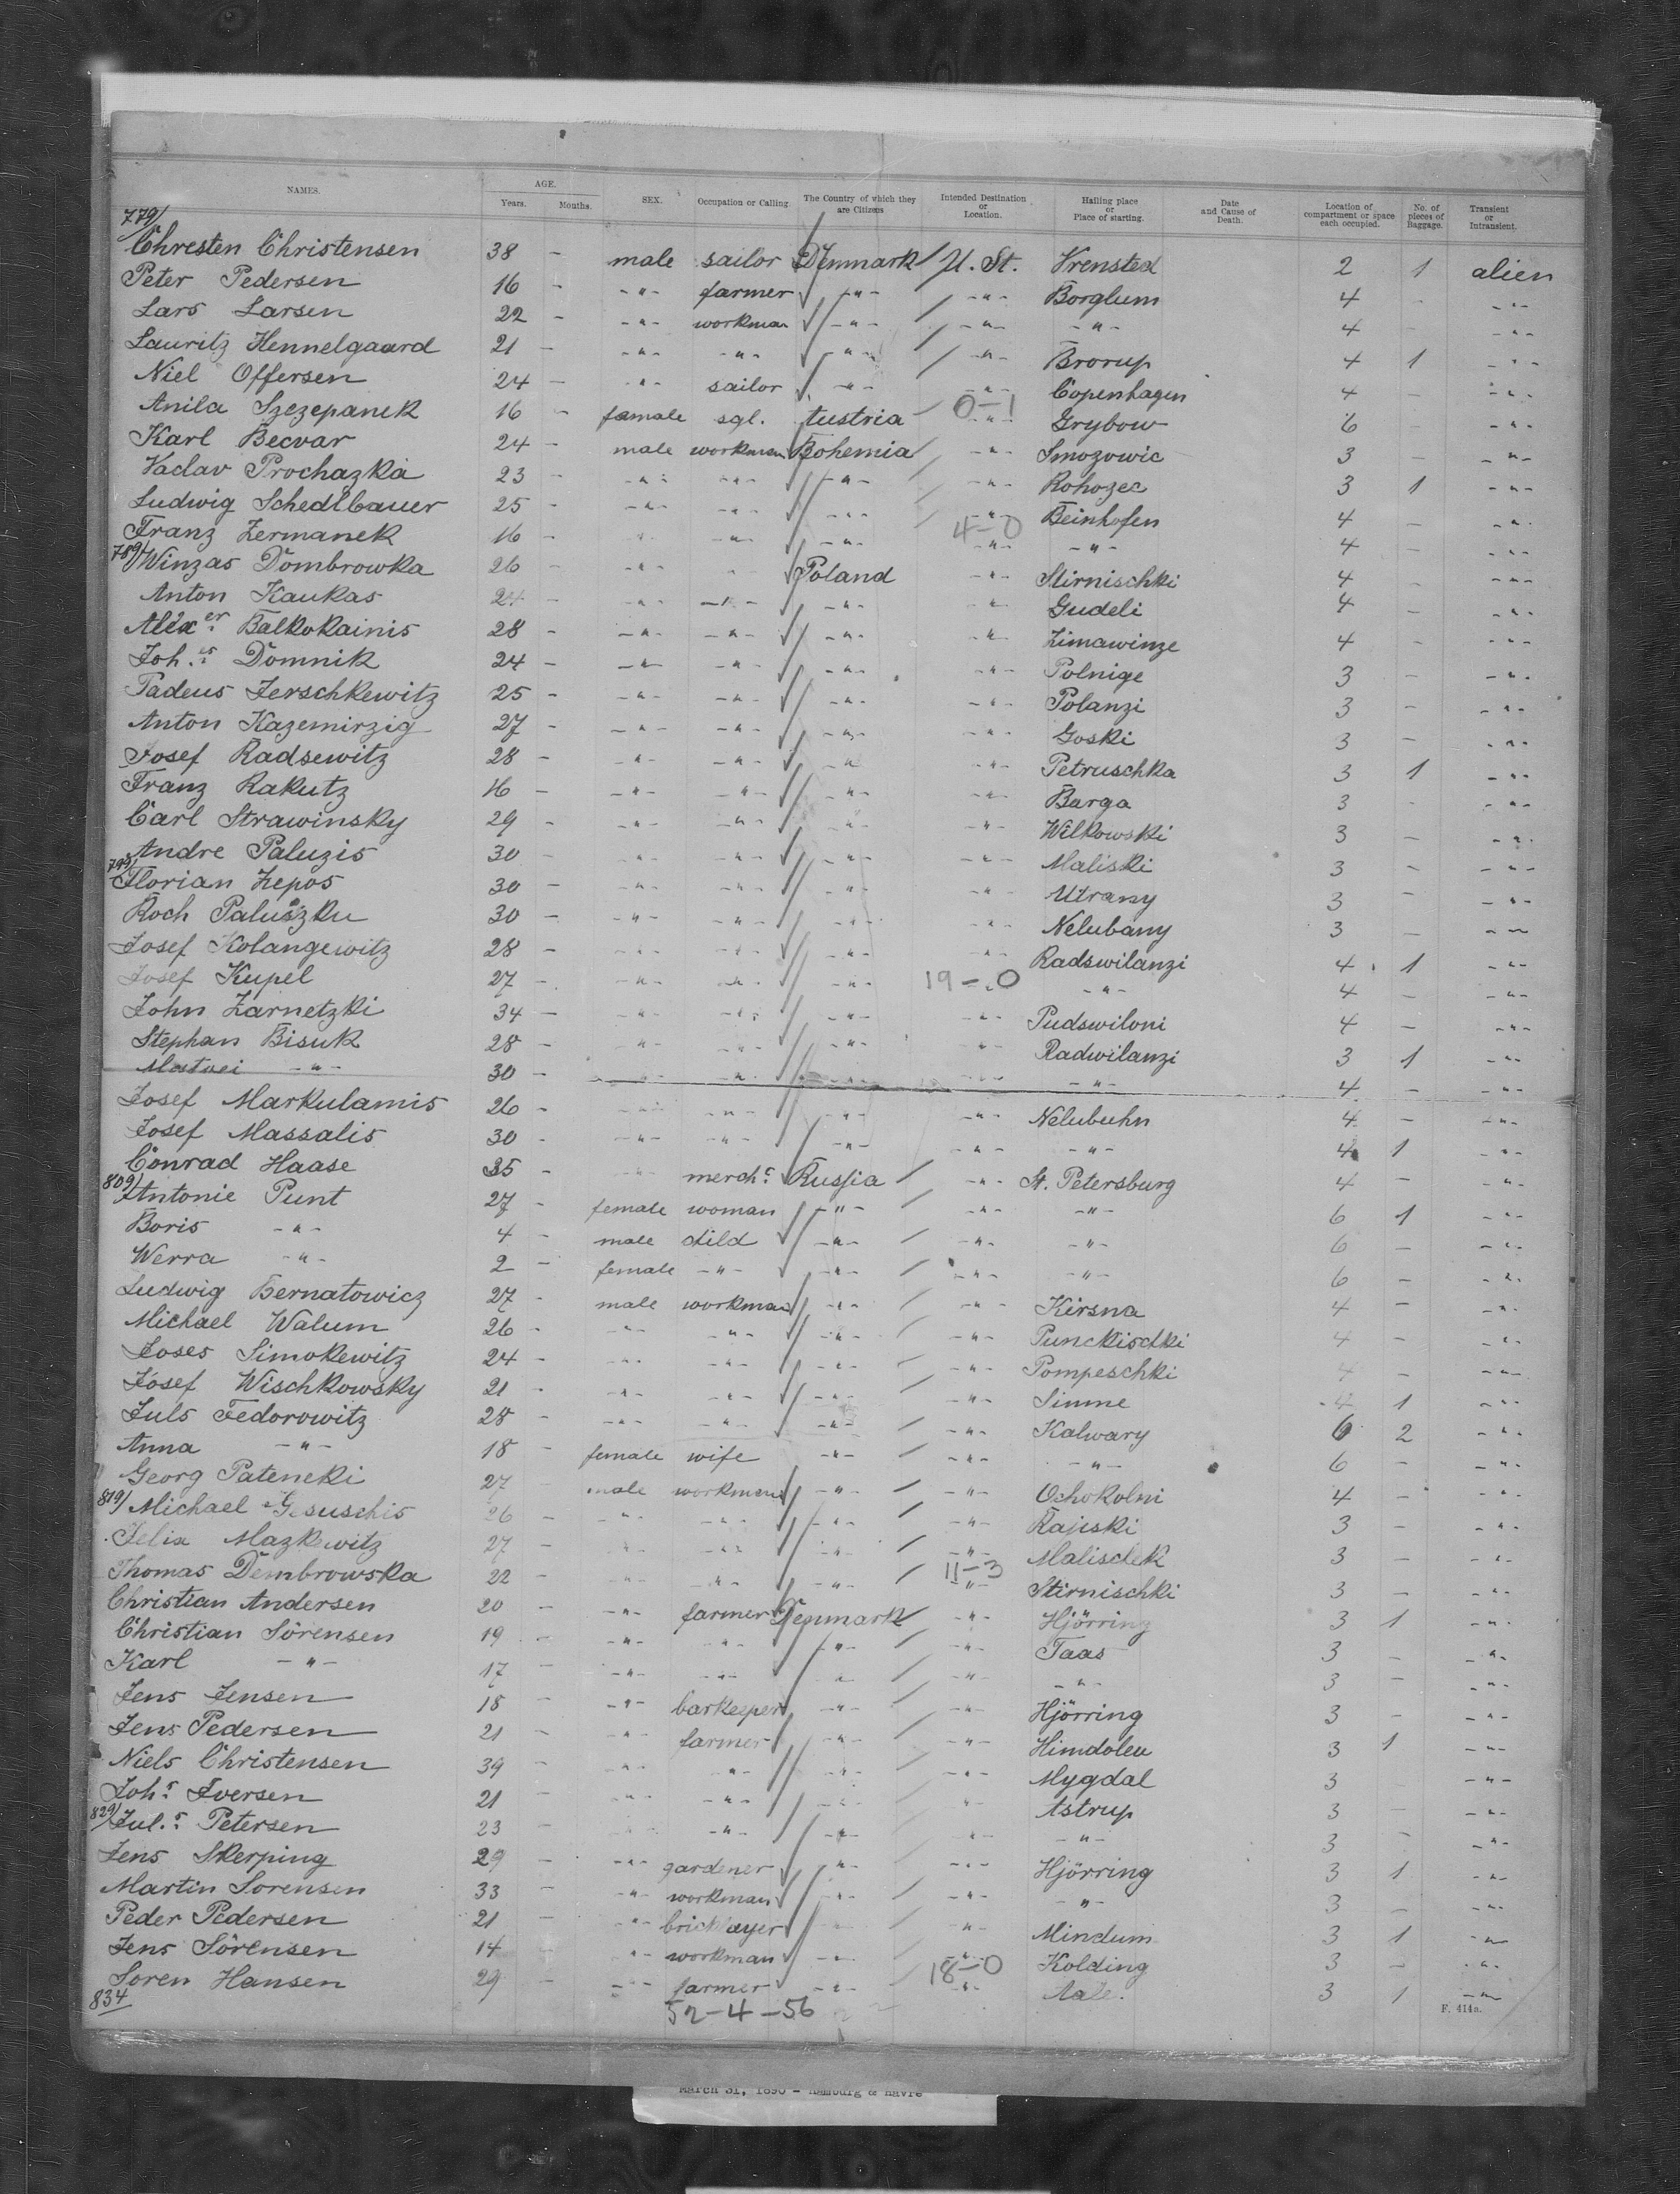 NAMES. AGE. Years. Months. SEX. Occupation or Calling. The Country of which they are Citizens Intended Destination or Location. Hailing place or Place of starting. Date and Cause of Death. Location of compartment or space each occupied. No. of pieces of Baggage. Transient or Intransient.
779/
Chresten Christensen 38 - male sailor Denmark U. St. Vrensted 2 1 alien
Peter Pedersen 16 - -"- farmer -"- -"- Borglum 4 - -"-
Lars Larsen 22 - -"- workman -"- -"- -"- 4 - -"-
Lauritz Hennelgaard 21 - -"- -"- -"- -"- Brorup 4 1 -"-
Niel Offersen 24 - -"- sailor -"- -"- Copenhagen 4 - -"-
0-1
Anila Szczepanek 16 - female sgl. Austria -"- Grybow 6 - -"-
Karl Becvar 24 - male workman Bohemia -"- Smozowic 3 - -"-
Vaclav Prochazka 23 - -"- -"- -"- -"- Rohozec 3 1 -"-
Ludwig Schedlbauer 25 - -"- -"- -"- -"- Beinhofen 4 - -"-
4-0
Franz Zermanek 16 - -"- -"- -"- -"- -"- 4 - -"-
789/ Winzas Dombrowka 26 - -"- -"- Poland -"- Stirnischki 4 - -"-
Anton Kaukas 24 - -"- -"- -"- -"- Gudeli 4 - -"-
Alexer Balkokainis 28 - -"- -"- -"- -"- Zimawinze 4 - -"-
Joh.s Domnik 24 - -"- -"- -"- -"- Polnige 3 - -"-
Tadeus Jerschkewitz 25 - -"- -"- -"- -"- Polanzi 3 - -"-
Anton Kazemirzig 27 - -"- -"- -"- -"- Goski 3 - -"-
Josef Radsewitz 28 - -"- -"- -"- -"- Petruschka 3 1 -"-
Franz Rakutz 16 - -"- -"- -"- -"- Barga 3 - -"-
Carl Strawinsky 29 - -"- -"- -"- -"- Wilkowski 3 - -"-
Andre Paluzis 30 - -"- -"- -"- -"- Maliski 3 - -"-
799/ Florian Zepos 30 - -"- -"- -"- -"- Utrany 3 - -"-
Roch Paluszku 30 - -"- -"- -"- -"- Nelubany 3 - -"-
Josef Kolangewitz 28 - -"- -"- -"- -"- Radswilanzi 4 1 -"-
19-0
Josef Kupel 27 - -"- -"- -"- -"- -"- 4 - -"-
John Zarnetzki 34 - -"- -"- -"- -"- Pudswiloni 4 - -"-
Stephan Bisuk 28 - -"- -"- -"- -"- Radwilanzi 3 1 -"-
-"- 30 - -"- -"- -"- -"- -"- 4 - -"-
Josef Markulamis 26 - -"- -"- -"- -"- Nelubuhn 4 - -"-
Josef Massalis 30 - -"- -"- -"- -"- -"- 4 1 -"-
Conrad Haase 35 - -"- merch.t Russia -"- St. Petersburg 4 - -"-
809/ Antonie Punt 27 - female woman -"- -"- -"- 6 1 -"-
Boris -"- 4 - male child -"- -"- -"- 6 - -"-
Werra -"- 2 - female -"- -"- -"- -"- 6 - -"-
Ludwig Bernatowicz 27 - male workman -"- -"- Kirsna 4 - -"-
Michael Walum 26 - -"- -"- -"- -"- Punckischki 4 - -"-
Joses Simokewitz 24 - -"- -"- -"- -"- Pompeschki 4 - -"-
Josef Wischkowsky 21 - -"- -"- -"- -"- Simne 4 1 -"-
Juls Fedorowitz 28 - -"- -"- -"- -"- Kalwary 6 2 -"-
Anna -"- 18 - female wife -"- -"- -"- 6 - -"-
Georg Pateneki 27 male workman -"- -"- Ochokolni 4 - -"-
819/ Michael Gesuschis 26 - -"- -"- -"- -"- Rajiski 3 - -"-
Felix Mazkewitz 27 - -"- -"- -"- -"- Malischek 3 - -"-
11-3
Thomas Dembrowska 22 - -"- -"- -"- -"- Stirnischki 3 - -"-
Christian Andersen 20 - -"- farmer Denmark -"- Hjörring 3 1 -"-
Christian Sörensen 19 - -"- -"- -"- -"- Taas 3 - -"-
Karl -"- 17 - -"- -"- -"- -"- -"- 3 - -"-
Jens Jensen 18 - -"- barkeeper -"- -"- Hjörring 3 - -"-
Jens Pedersen 21 - -"- farmer -"- -"- Himdoleu 3 1 -"-
Niels Christensen 39 - -"- -"- -"- -"- Mygdal 3 - -"-
Joh.s Iversen 21 - -"- -"- -"- -"- Astrup 3 - -"-
829/ Jul.s Petersen 23 -"- -"- -"- -"- -"- 3 - -"-
Jens Skerping 29 - -"- gardener -"- -"- Hjörring 3 1 -"-
Martin Sorensen 33 - -"- workman -"- -"- -"- 3 - -"-
Peder Pedersen 21 - -"- bricklayer -"- -"- Mindum 3 1 -"-
Jens Sörensen 14 - -"- workman -"- -"- Kolding 3 - -"-
18-0
Soren Hansen 29 - -"- farmer -"- -"- Aale. 3 1 -"-
834
52-4-56
F. 414a.
March 31, 1890 - Hamburg & Havre